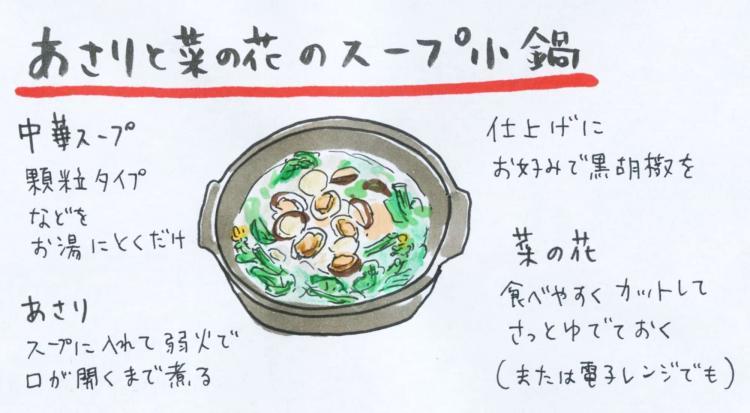 あさりと菜の花のスープ小鍋
中華スープ
顆粒タイプ
などを
お湯にとくだけ
あさり
スープに入れて弱火で
口が開くまで煮る
仕上げに
お好みで黒胡椒を
菜の花
食べやすくカットして
さっとゆでておく
(または電子レンジでも)